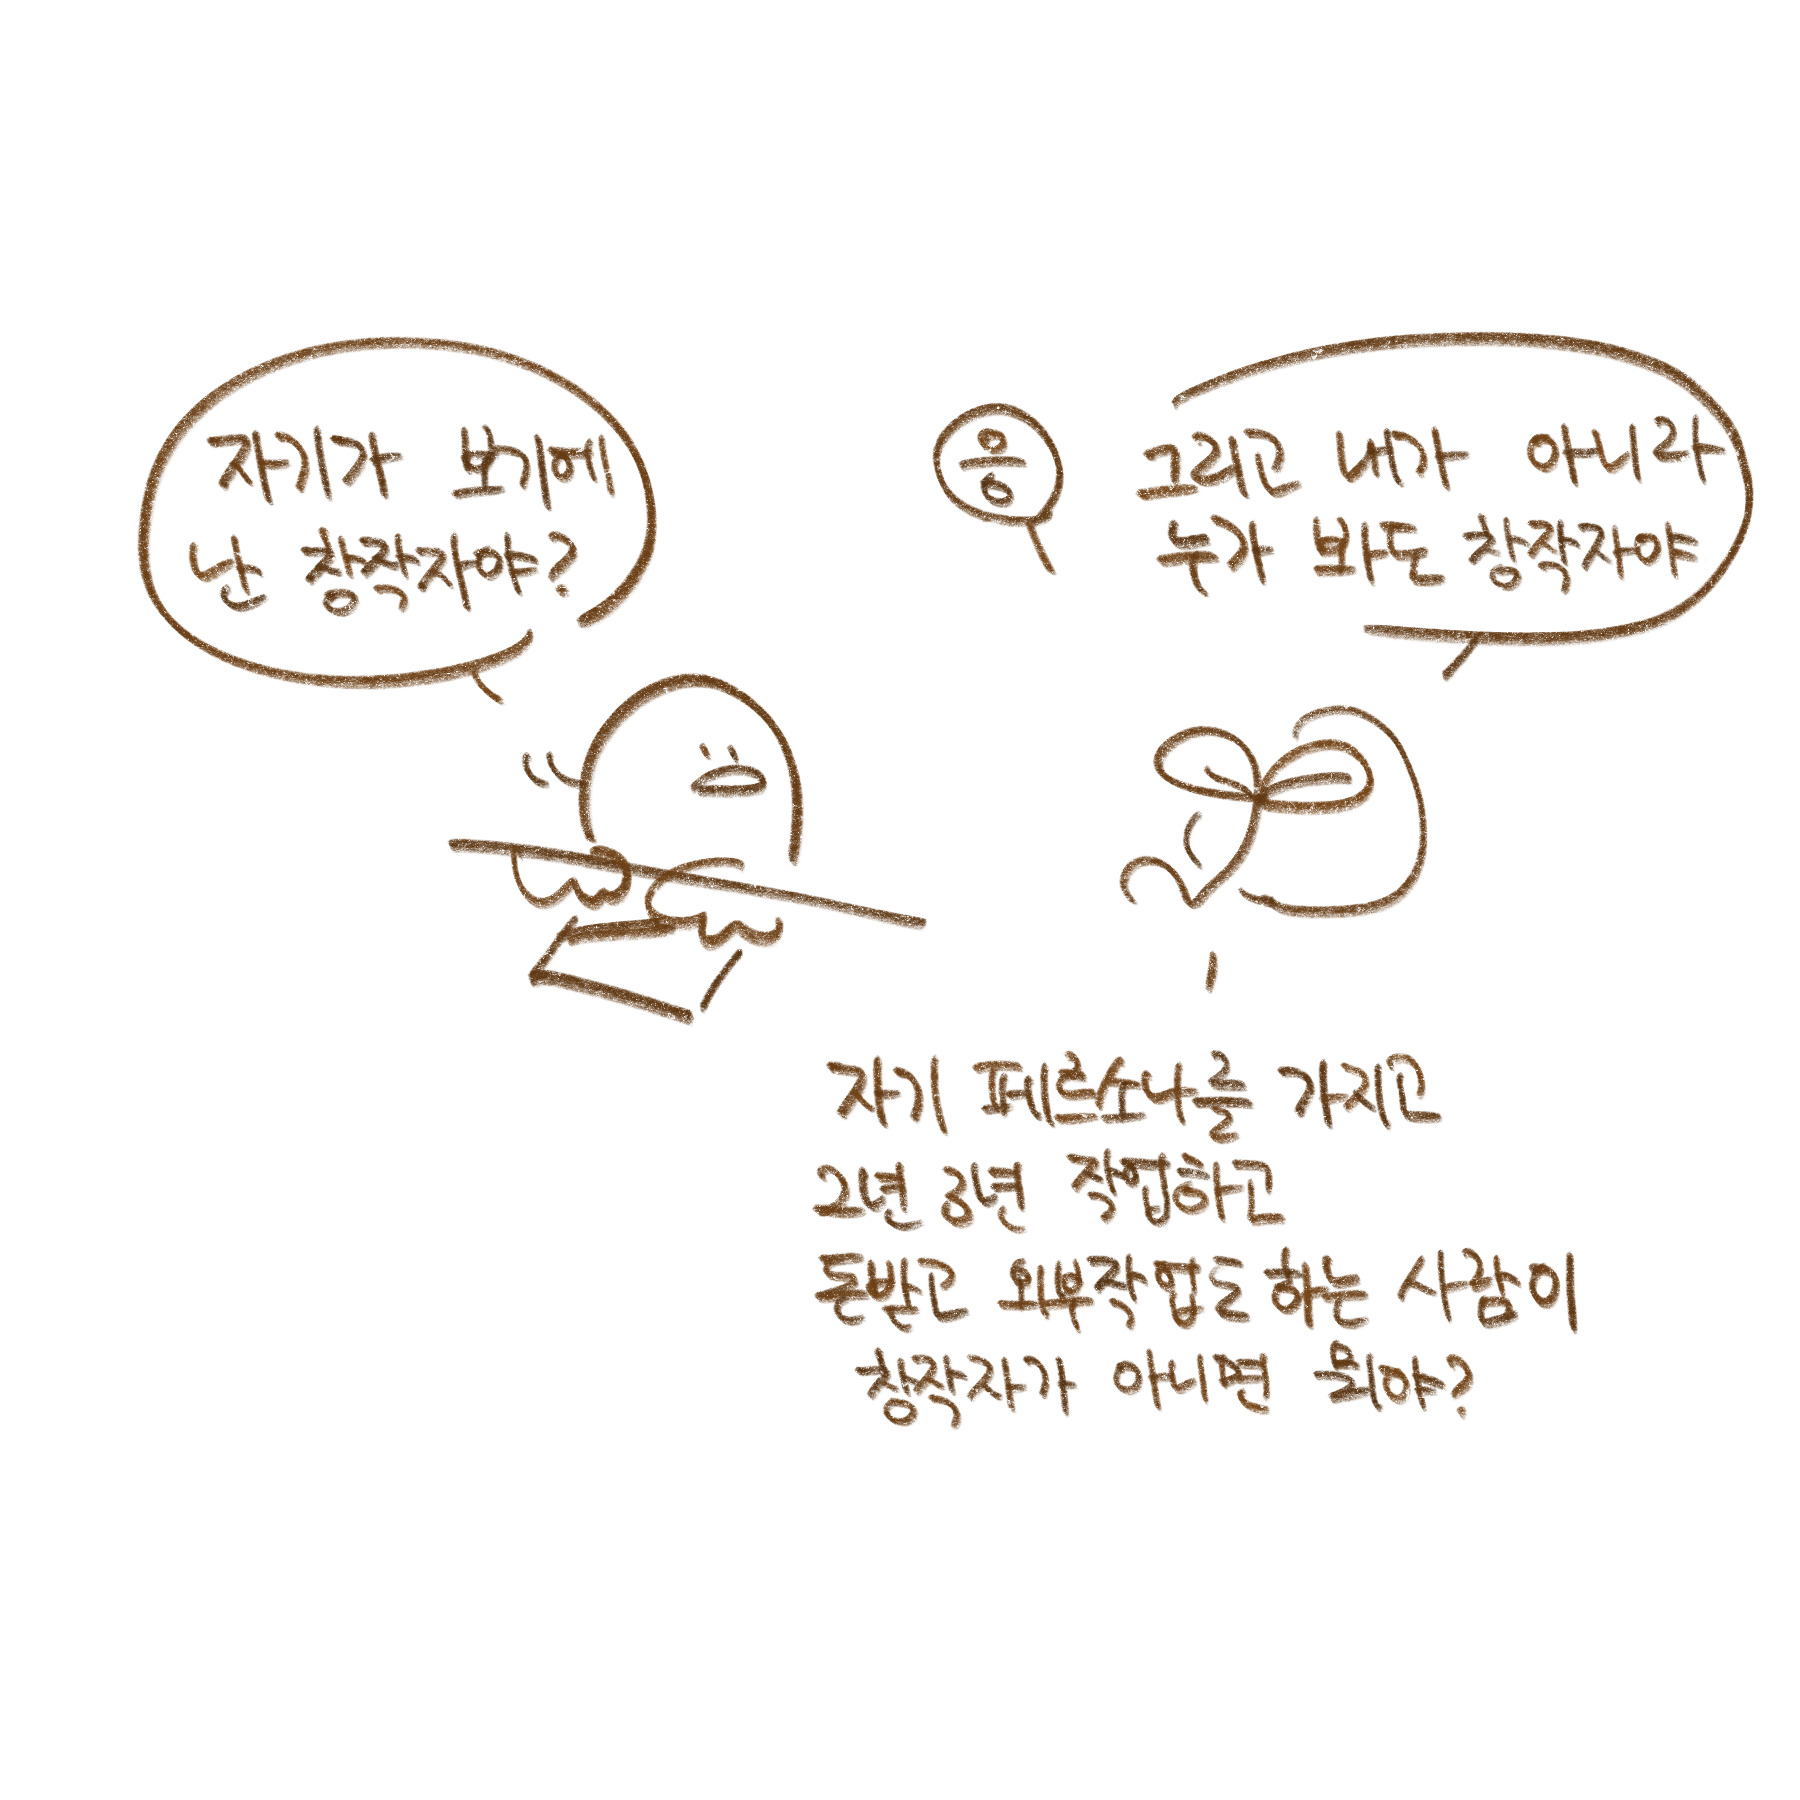 자기가 보기에
난 창작자야?
응
그리고 내가 아니라
누가 봐도 창작자야
자기 페르소나를 가지고
2년 3년 작업하고
돈받고 외부작업도 하는 사람이
창작자가 아니면 뭐야?